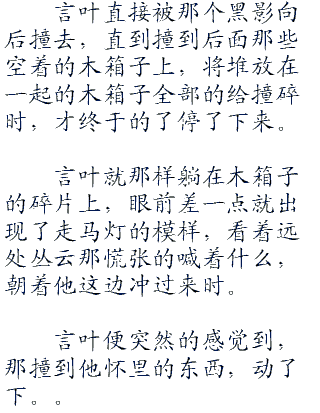 言叶直接被那个黑影向
后撞去，直到撞到后面那些
空着的木箱子上，将堆放在
一起的木箱子全部的给撞碎
时，才终于的了停了下来。
言叶就那样躺在木箱子
的碎片上，眼前差一点就出
现了走马灯的模样，看着远
处丛云那慌张的喊着什么，
朝着他这边冲过来时。
言叶便突然的感觉到，
那撞到他怀里的东西，动了
下。。